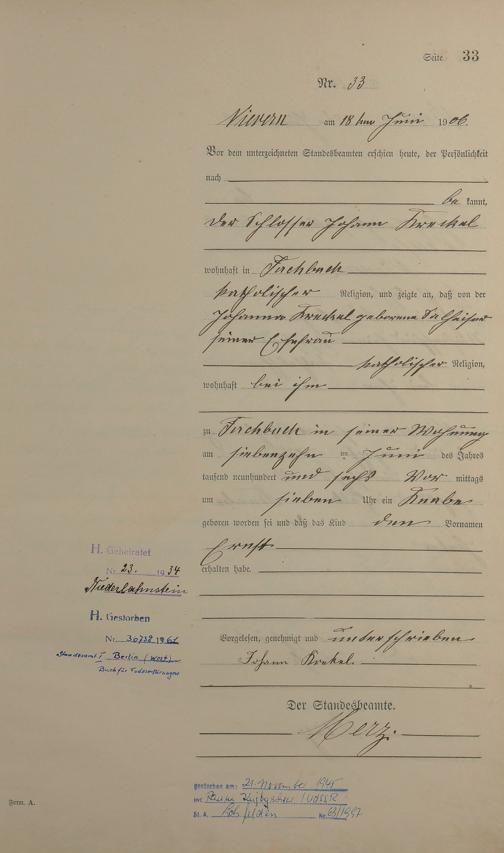 Seite 33
Nr. 33
Nievern am 18ten Juni 1906.
Vor dem unterzeichneten Standesbeamten erschien heute, der Persönlichkeit
nach
be kannt,
der Schlosser Johann Kreckel
wohnhaft in Fachbach
katholischer Religion, und zeigte an, daß von der
Johanna Kreckel geborene
seiner Ehefrau
katholischer Religion,
wohnhaft bei ihm
zu Fachbach in seiner Wohnung
am siebenzehn ten Juni des Jahres
tausend neunhundert und sechs Vor mittags
um sieben Uhr ein Knabe
geboren worden sei und daß das Kind den Vornamen
Ernst
erhalten habe.
H. Geheiratet
Nr. 23. 1934
Niederlahnstein
H. Gestorben
Nr. 30738 196
Standesamt I Berlin (West)
Buch für Todeserklärungen
Vorgelesen, genehmigt und unterschrieben
Johann Krekel.
Der Standesbeamte.
Merz.
gestorben am: 21. November 1945
in: UdSSR
St. A. Nr. 1997
Form. A.